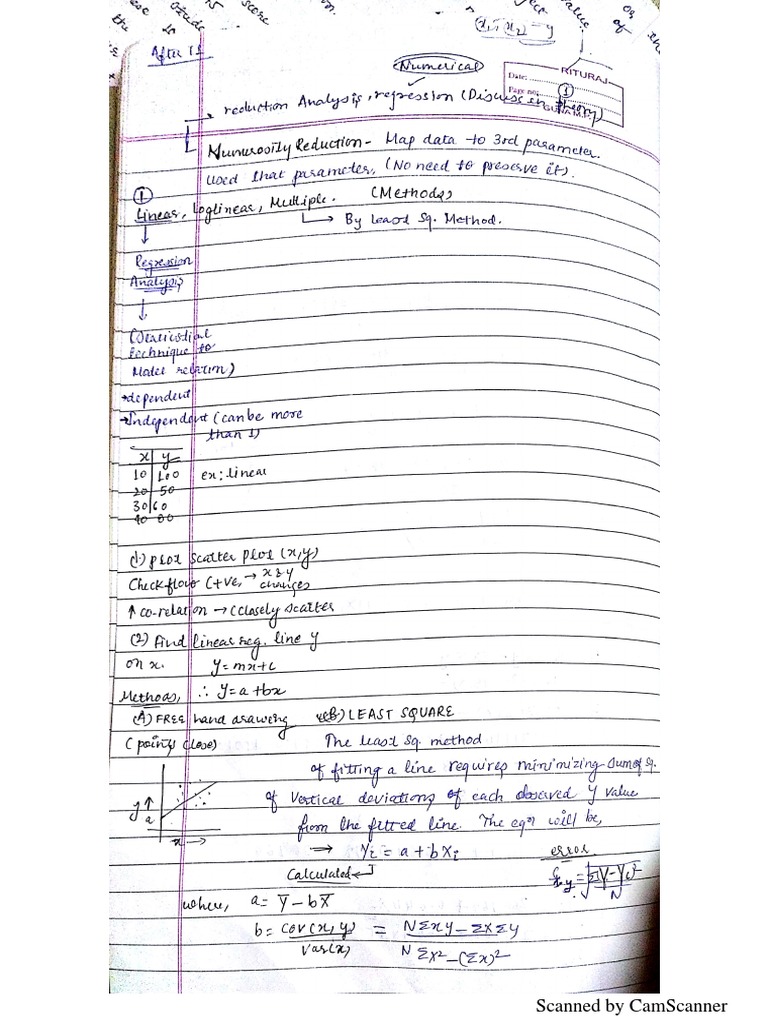 score
(x₁, x₂) = y
value
of
or
the
After 15
Numerical
RITURAJ
Date:
Page no:
→ reduction Analysis, regression (Discuss in theory)
Numerosity Reduction - Map data to 3rd parameter.
used that parameter, (No need to preserve it).
①
Linear, Loglinear, Multiple. (Methods)
→ By Least Sq. Method.
Regression
Analysis
(Statistical
technique to
Model relation)
→dependent
→Independent (can be more
than 1)
x | y
10 | 100 ex: linear
20 | 50
30 | 60
40 80
(1) plot scatter plot (x,y)
Check flow (+ve, → x & y
changes
↑ co-relation → (closely scatter
(2) find linear reg. line y
on x. y=mx+c
Methods, ∴ y=a+bx
(A) FREE hand drawing (B) LEAST SQUARE
(points close) The least sq. method
of fitting a line requires minimizing sum of sq.
y↑ of vertical deviations of each observed y value
a from the fitted line. The eqn will be,
x → → Yi = a + bXi error
Calculated
where, a = Y̅ - bX̅
b = Cov(x,y) / Var(x) = NΣxy - ΣxΣy / NΣx² - (Σx)²
Scanned by CamScanner